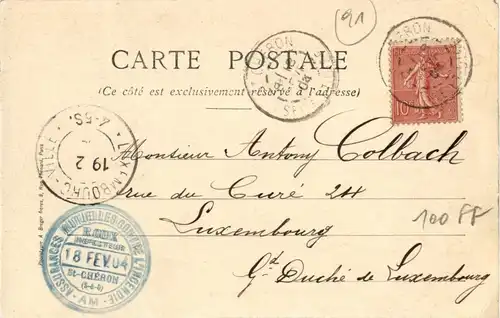 91
CARTE POSTALE
(Ce côté est exclusivement réservé à l'adresse)
ST CHÉRON
10
LUXEMBOURG-VILLE
19 2
4-5S
Monsieur Antony Colbach
rue du Curé 24
Luxembourg
Gd Duché de Luxembourg
100 FF
ASSURANCES MUTUELLES CONTRE L'INCENDIE
18 FEV. 04
St-CHÉRON
(S-&-O)
AM